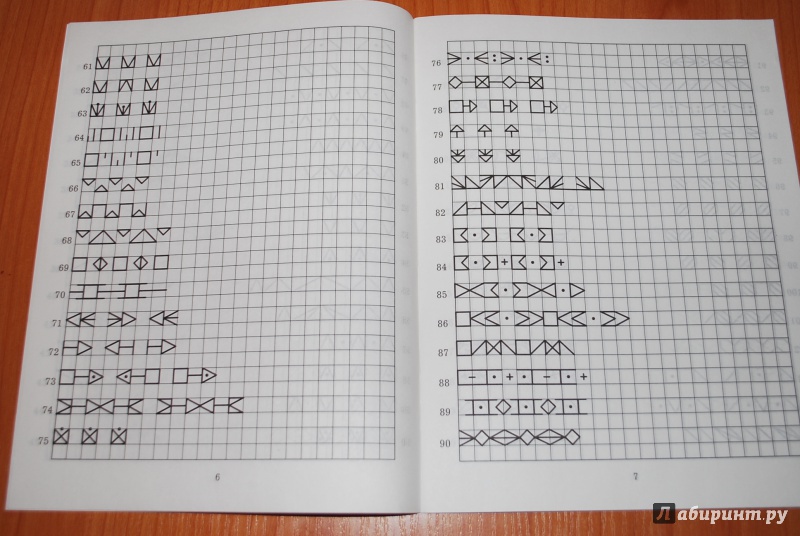 61
62
63
64
65
66
67
68
69
70
71
72
73
74
75
6
76
77
78
79
80
81
82
83
84
85
86
87
88
89
90
7
Лабиринт.ру